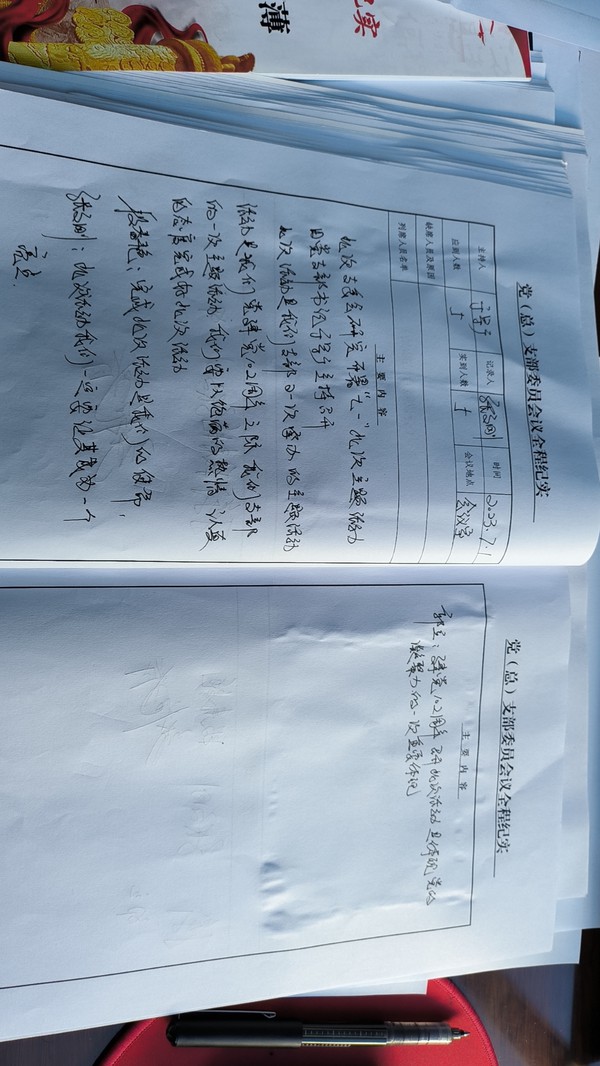 纪实
薄
党（总）支部委员会议全程纪实
主持人 记录人 时间 2023.7.1
应到人数 5 实到人数 5 会议地点 会议室
缺席人员及原因
列席人员名单
主要内容
此次支委会研究开展“七一”此次主题活动
由党支部书记 主持召开
此次活动是我们支部的一次重大的主题活动
活动是我们党建党102周年之际 我们支部
的一次主题活动 我们要以饱满的热情、认真
的态度完成好此次活动
完成此次活动是我们的使命，
此次活动我们一定要让其成为一个
亮点
党（总）支部委员会议全程纪实
主要内容
建党102周年 召开此次活动是体现党的
凝聚力的一次重要体现